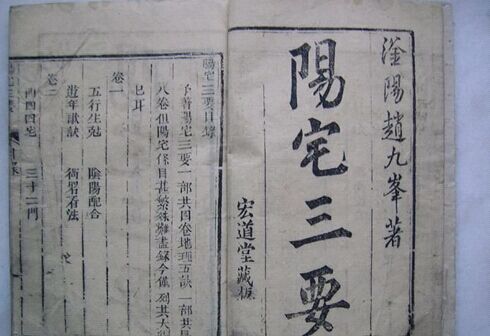 滏陽趙九峯著
陽宅三要
宏道堂藏板
陽宅三要目錄
予著陽宅三要一部共四卷地理五訣一部共
八卷但陽宅條目甚繁殊難盡錄今僅列其大
已耳
卷一
五行生剋 陰陽配合
遊年歌訣 衙署看法
卷二
西四宅 三十二門